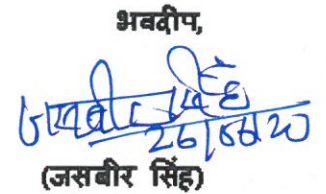 भवदीप,
जसबीर सिंह
26/06/20
(जसबीर सिंह)